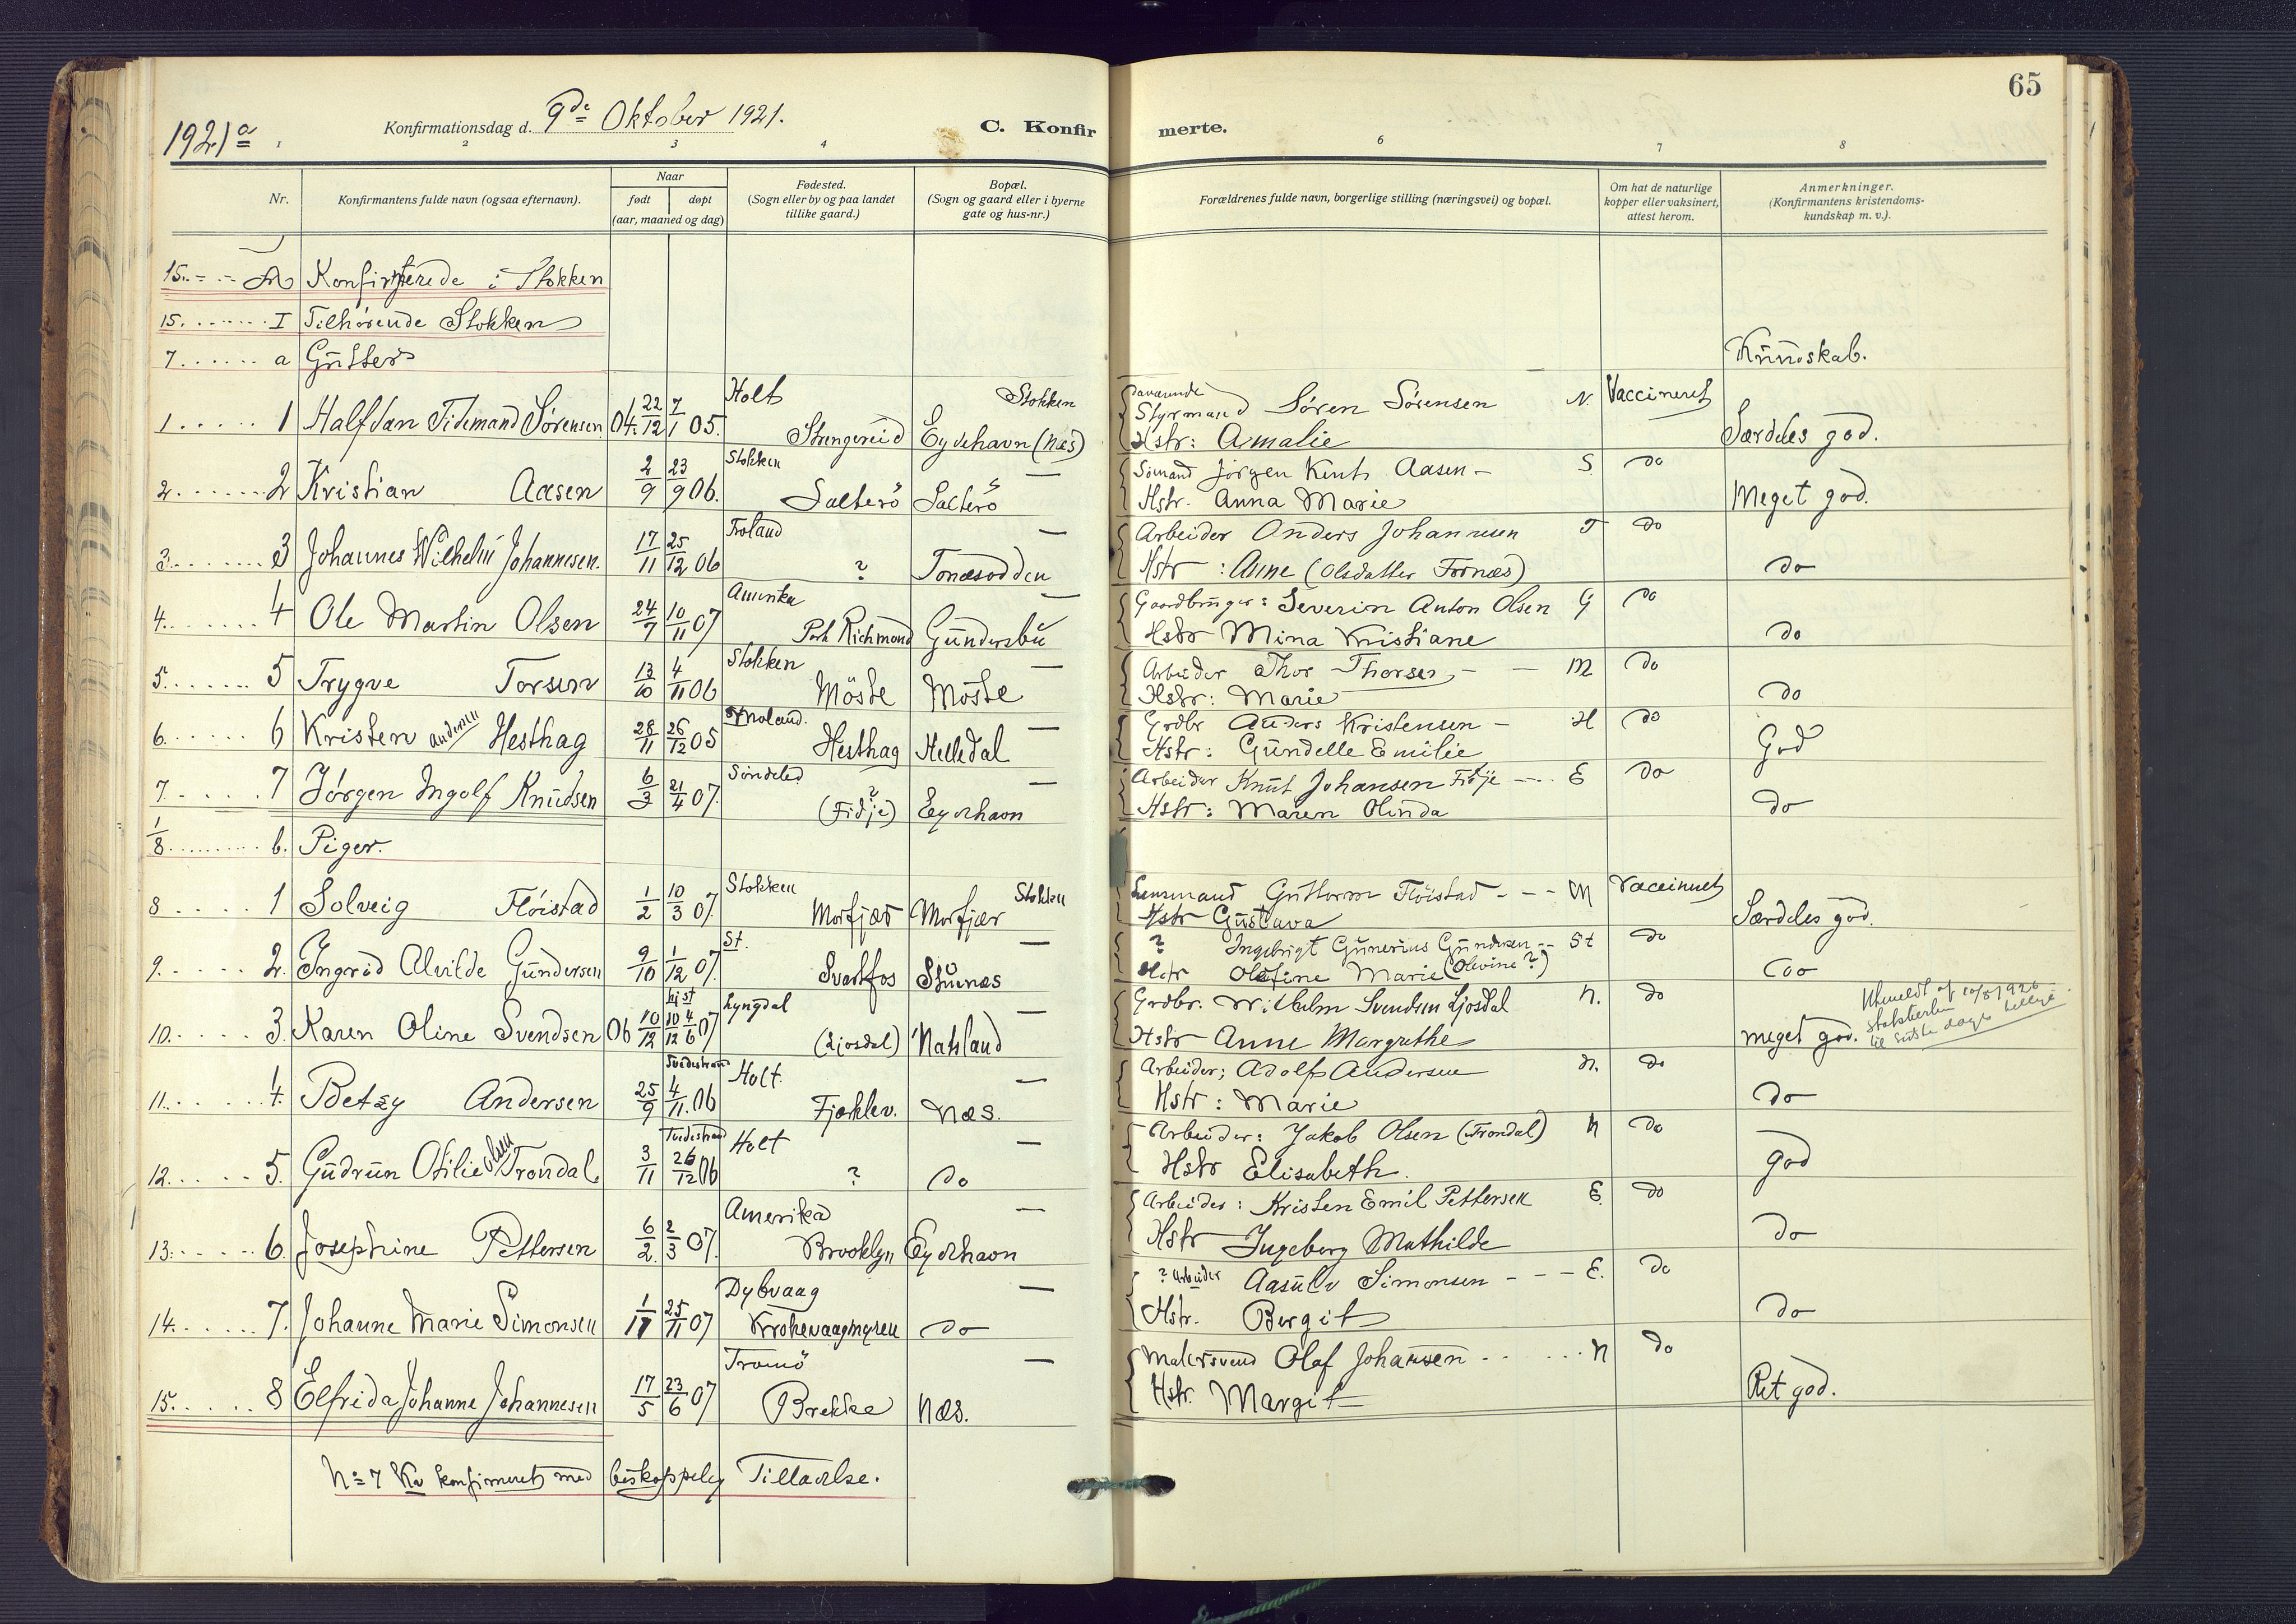 65
1921 a
Konfirmationsdag d. 9de Oktober 1921.
C. Konfirmerte.
1 2 3 4 6 7 8
Nr.
Konfirmantens fulde navn (ogsaa efternavn).
Naar
født døpt
(aar, maaned og dag)
Fødested.
(Sogn eller by og paa landet
tillike gaard.)
Bopæl.
(Sogn og gaard eller i byerne
gate og hus-nr.)
Forældrenes fulde navn, borgerlige stilling (næringsvei) og bopæl.
Om hat de naturlige
kopper eller vaksinert,
attest herom.
Anmerkninger.
(Konfirmantens kristendoms-
kundskap m. v.).
15. - - A Konfirmerede i Stokken
15. . . . . . . I Tilhørende Stokken
7 . . . . . . a Gutter
Kundskab.
1. . . . . 1 Halfdan Tidemand Sørensen 04. 22/12 7/1 05. Holt Strengereid Stokken Eydehavn (Næs) Styrmand Søren Sørensen N. Vaccineret
Hstr: Amalie Særdeles god.
2. . . . . . . 2 Kristian Aasen 2/9 23/9 06. Stokken Salterö — Salterö Sömand Jörgen Knuts Aasen – S do
Hstr. Anna Marie Meget god.
3. . . . . . . 3 Johannes Wilhelm Johannesen. 17/11 25/12 06 Froland ? — Tonæsodden Arbeider Anders Johannesen T do
Hstr : Anne (Olsdatter Fornæs) do
4. . . . . . . 4 Ole Martin Olsen 24/7 10/11 07 Amerika Port Richmond — Gundersbu Gaardbruger: Severin Anton Olsen G do
Hstr Mina Kristiane do
5. . . . . . . 5 Trygve Torsen 13/10 4/11 06 Stokken Möste — Möste Arbeider Thor Thorsen – – M do
Hstr: Marie do
6. . . . . 6 Kristen Andersen Hesthag 28/11 26/12 05 Froland. Hesthag — Helledal Grdbr Anders Kristensen – H do
Hstr: Gundelle Emilie God
7. . . . . 7 Jørgen Ingolf Knudsen 6/3 21/4 07. Söndeled ? (Fidje) — Eydehavn Arbeider Knut Johansen Fidje – – E do
Hstr: Maren Olinda do
1/8 . . . . . . . . b. Piger.
8 . . . . . 1 Solveig Flöistad 1/2 10/3 07. Stokken Morfjær Stokken Morfjær Lensmand Guttorm Flöistad - - - M Vaccineret
Hstr Gustava Særdeles god.
9. . . . . . 2. Ingrid Alvilde Gundersen 9/10 1/12 07. St. Svartfos — Stuenæs ? Ingebrigt Gunerius Gundersen -- St do
Hstr Olefine Marie (Olevine ?) do
10. . . . . . 3. Karen Oline Svendsen 06 10/12 10/12 4/6 07 Lyngdal (Ljosdal) — Natland Grdbr. Wilhelm Svendsen Ljosdal N. do
Hstr Anne Margrethe meget god.
Utmeldt af 10/8 1926
statskirken
til sidste dages hellige
11. . . . . . 4. Betzy Andersen 25/9 Tvedestrand 4/11. 06 Holt. Fjæklev. — Næs. Arbeider; Adolf Andersen N. do
Hstr : Marie do
12. . . . . . 5. Gudrun Otilie Olsen Trondal. 3/11 Tvedestrand 26/12 06 Holt ? — do Arbeider: Jakob Olsen (Trondal) N do
Hstr Elisabeth. god
13. . . . . . 6. Josephine Pettersen 6/2. 2/3 07. Amerika Brooklyn — Eydehavn Arbeider : Kristen Emil Pettersen E. do
Hstr Ingeborg Mathilde do
14. . . . . . 7. Johanne Marie Simonsen 1/11 25/11 07 Dybvaag Krokevaagmyren — do ? Arbeider Aasulv Simonsen - - - E. do
Hstr. Bergit do
15. . . . . . 8 Elfrida Johanne Johannesen 17/5 23/6 07 Tromö Brekka — Næs. Malersvend Olaf Johansen . . . . . . N do
Hstr. Margit Ret god.
No 7 konfirmeret med biskoppelig Tilladelse.